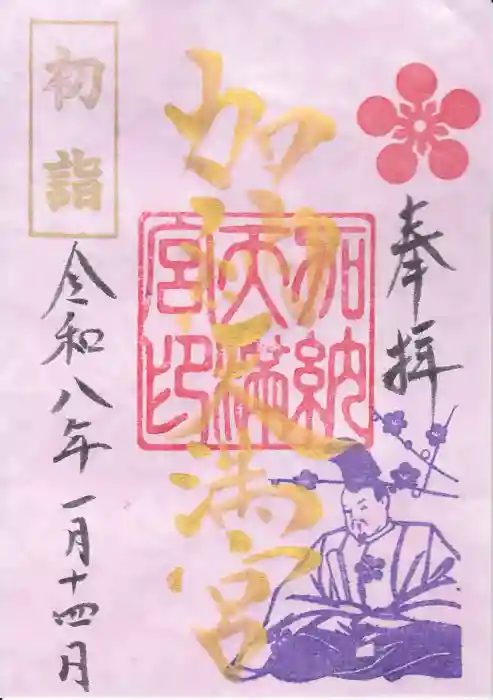 奉拝
加納天満宮
加納天満宮印
初詣
令和八年一月十四月